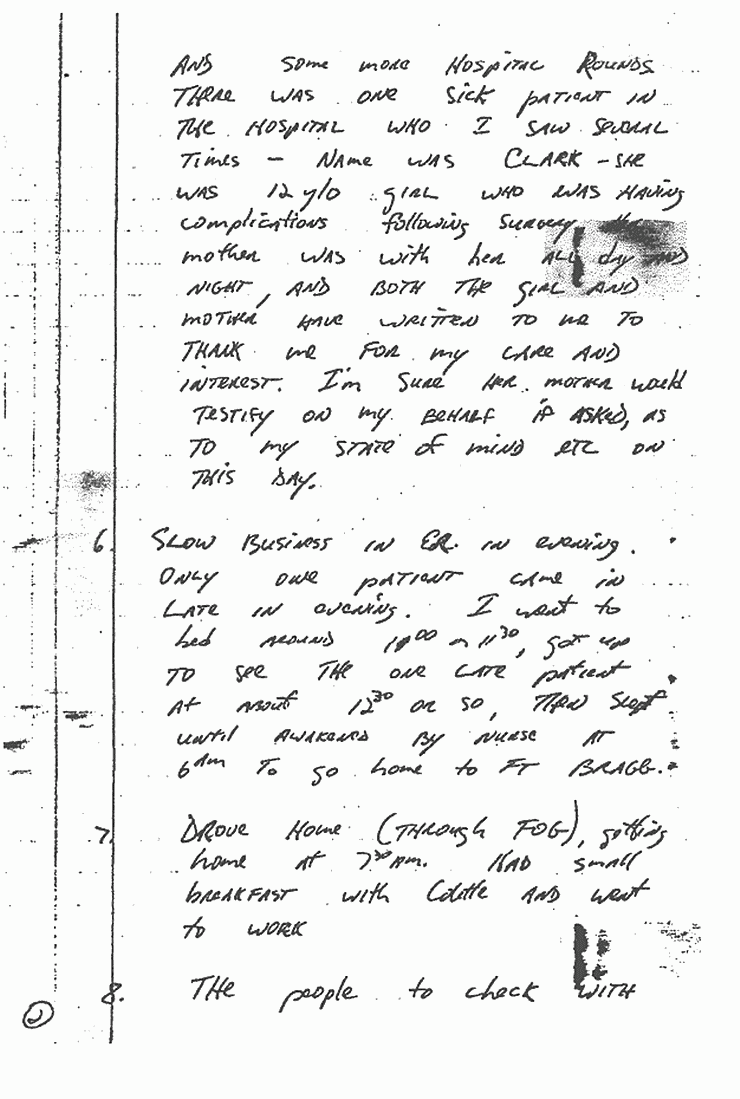 AND some more Hospital Rounds
There was one sick patient in
The Hospital who I saw several
Times - Name was CLARK - she
was 12 y/o girl who was having
complications following surgery the
mother was with her all day and
night, and both the girl and
mother have written to me to
thank me for my care and
interest. I'm sure her mother would
testify on my behalf if asked, as
to my state of mind etc on
this day.
6. Slow Business in ER. in evening.
Only one patient came in
late in evening. I went to
bed around or 11³⁰, got up
to see the one late patient
at about 12³⁰ or so, then slept
until awakened by nurse at
6 am to go home to FT BRAGG.
7. Drove Home (through FOG), getting
home at 7³⁰ am. Had small
breakfast with Colette and went
to work
8. The people to check with
2